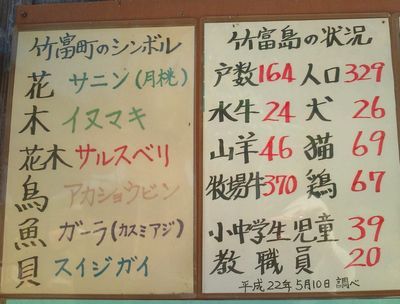 竹富町のシンボル
花 サニン(月桃)
木 イヌマキ
花木 サルスベリ
鳥 アカショウビン
魚 ガーラ(カスミアジ)
貝 スイジガイ
竹富島の状況
戸数 164 人口 329
水牛 24 犬 26
山羊 46 猫 69
牧場牛 370 鶏 67
小中学生児童 39
教職員 20
平成22年5月10日 調べ